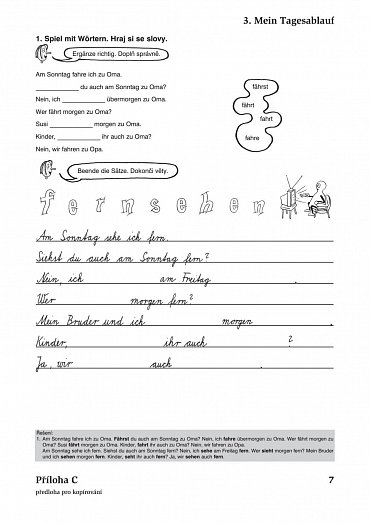 3. Mein Tagesablauf
1. Spiel mit Wörtern. Hraj si se slovy.
Ergänze richtig. Doplň správně.
Am Sonntag fahre ich zu Oma.
____________ du auch am Sonntag zu Oma?
Nein, ich ____________ übermorgen zu Oma.
Wer fährt morgen zu Oma?
Susi ____________ morgen zu Oma.
Kinder, ____________ ihr auch zu Oma?
Nein, wir fahren zu Opa.
fährst
fährt
fahrt
fahre
Beende die Sätze. Dokonči věty.
fernsehen
Am Sonntag sehe ich fern.
Siehst du auch am Sonntag fern?
Nein, ich am Freitag .
Wer morgen fern?
Mein Bruder und ich morgen .
Kinder, ihr auch ?
Ja, wir auch .
Řešení:
1. Am Sonntag fahre ich zu Oma. Fährst du auch am Sonntag zu Oma? Nein, ich fahre übermorgen zu Oma. Wer fährt morgen zu
Oma? Susi fährt morgen zu Oma. Kinder, fahrt ihr auch zu Oma? Nein, wir fahren zu Opa.
Am Sonntag sehe ich fern. Siehst du auch am Sonntag fern? Nein, ich sehe am Freitag fern. Wer sieht morgen fern? Mein Bruder
und ich sehen morgen fern. Kinder, seht ihr auch fern? Ja, wir sehen auch fern.
Příloha C
7
předloha pro kopírování